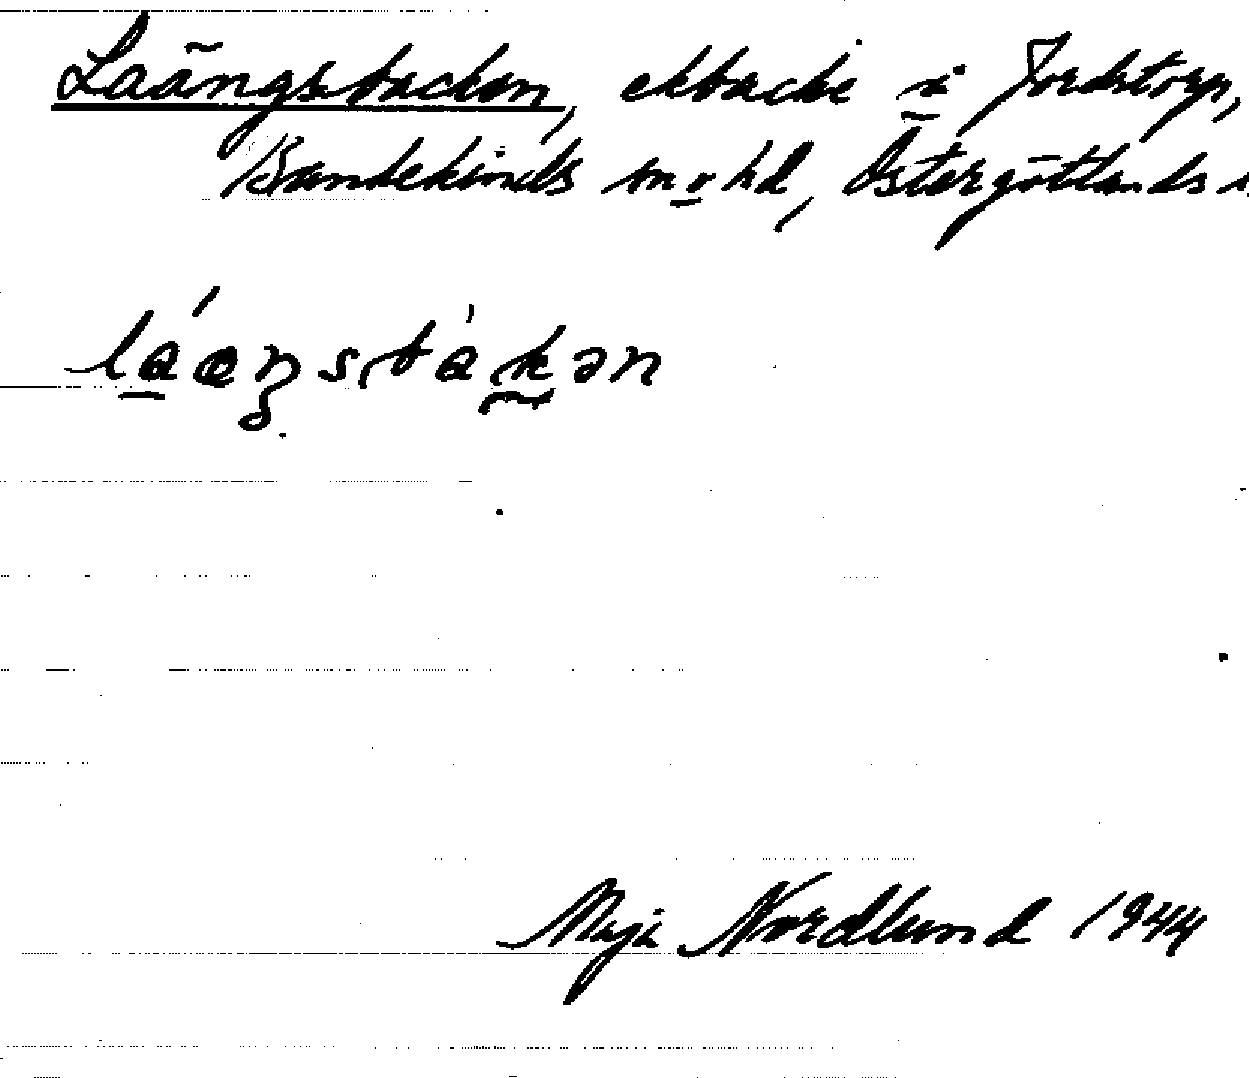 Laängsbacken, ekbacke i Jordstorp,
Bankekinds sn o hd, Östergötlands
Maja Nordlund 1944